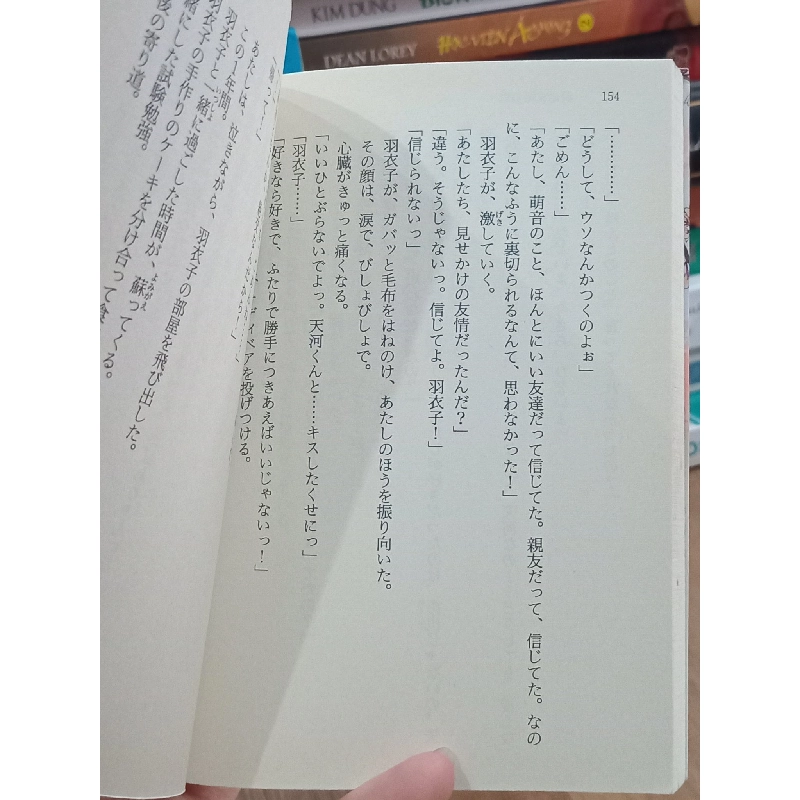 KIM DUNG
DEAN LOREY
154
「…………」
「どうして、ウソなんかつくのよぉ」
「ごめん……」
「あたし、萌音のこと、ほんとにいい友達だって信じてた。親友だって、信じてた。なの
に、こんなふうに裏切られるなんて、思わなかった！」
羽衣子が、激していく。
「あたしたち、見せかけの友情だったんだ？」
「違う。そうじゃないっ。信じてよ。羽衣子！」
「信じられないっ」
羽衣子が、ガバッと毛布をはねのけ、あたしのほうを振り向いた。
その顔は、涙で、びしょびしょで。
心臓がきゅっと痛くなる。
「いいひとぶらないでよっ。天河くんと……キスしたくせにっ」
「羽衣子……」
「好きなら好きで、ふたりで勝手につきあえばいいじゃないっ！」
ディベアを投げつける。
あたしは、泣きながら、羽衣子の部屋を飛び出した。
この1年間。
羽衣子と一緒に過ごした時間が、蘇ってくる。
羽衣子の手作りのケーキを分け合って
緒にした試験勉強。
後の寄り道。